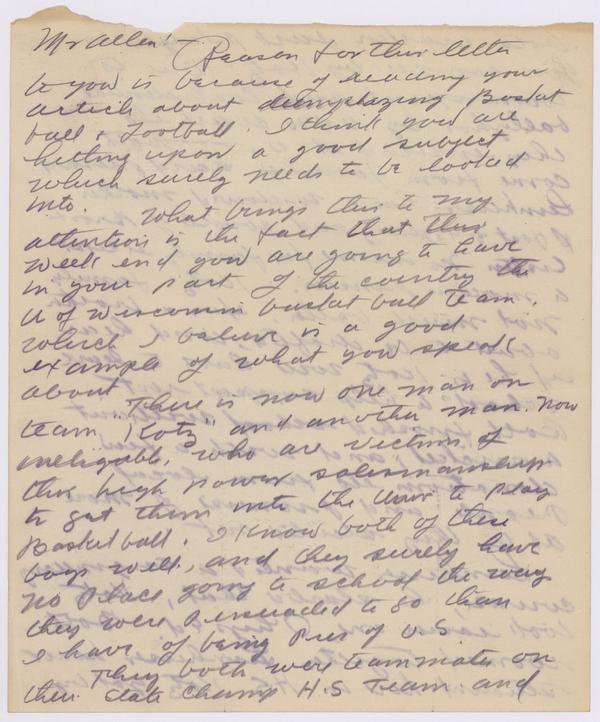 Mr Allen! —
Reason for this letter
to you is because of reading your
article about deemphazing Basket
ball & Football. I think you are
hitting upon a good subject
which surely needs to be looked
into.
What brings this to my
attention is the fact that this
week end you are going to have
in your part of the country the
U of Wisconsin basket ball team.
which I believe is a good
example of what you speak
about
There is now one man on
team "Kotz" and another man. now
ineligable, who are victims of
this high power salesmanship
to get them into the Univ to play
Basketball. I know both of these
boys well, and they surely have
no place going to school the way
they were persuaded to go than
I have of being Pres of U.S
They both were teammates on
their State Champ H.S Team and